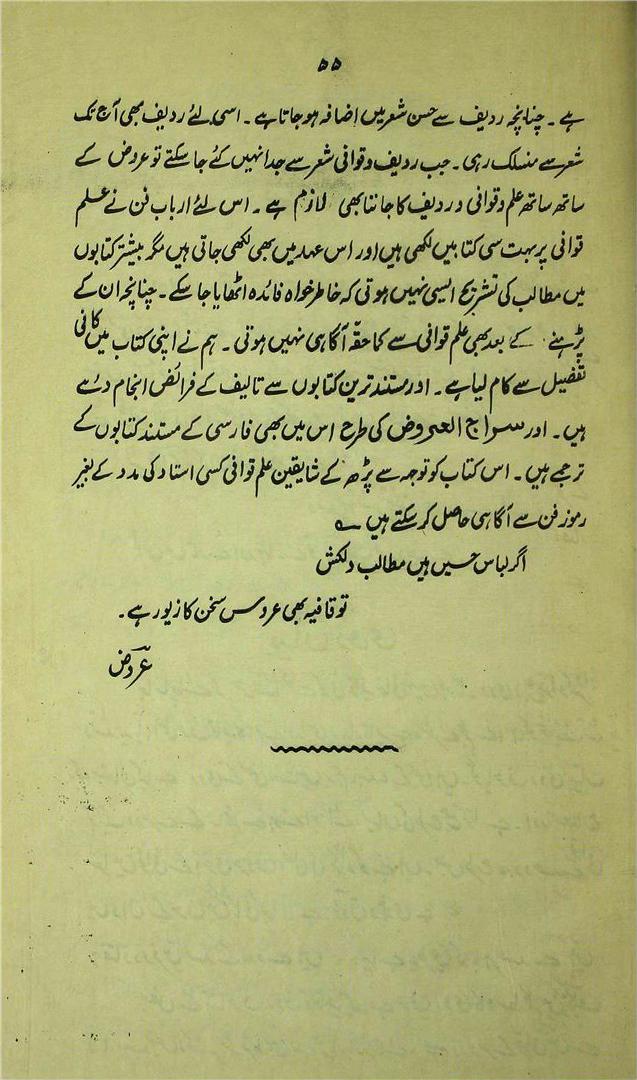 ۵۵
ہے ۔ چنانچہ ردیف سے حسن شعر میں اضافہ ہو جاتا ہے ۔ اسی لئے ردیف بھی آج تک
شعر سے منسلک رہی ۔ جب ردیف و قوافی شعر سے جدا نہیں کئے جا سکتے تو عروض کے
ساتھ ساتھ علم و قوافی و ردیف کا جاننا بھی لازم ہے ۔ اس لئے ارباب فن نے علم
قوافی پر بہت سی کتابیں لکھی ہیں اور اس عہد میں بھی لکھی جاتی ہیں مگر بیشتر کتابوں
میں مطالب کی تشریح ایسی نہیں ہوتی کہ خاطر خواہ فائدہ اٹھایا جا سکے ۔ چنانچہ ان کے
پڑہنے کے بعد بھی علم قوافی سے کما حقّہ آگاہی نہیں ہوتی ۔ ہم نے اپنی کتاب میں کافی
تفصیل سے کام لیا ہے ۔ اور مستند ترین کتابوں سے تالیف کے فرائض انجام دئے
ہیں ۔ اور سراج العروض کی طرح اس میں بھی فارسی کے مستند کتابوں کے
ترجمے ہیں ۔ اس کتاب کو توجہ سے پڑھ کے شایقین علم قوافی کسی استاد کی مدد کے بغیر
رموز فن سے آگاہی حاصل کر سکتے ہیں ؎
اگر لباس حسیں ہیں مطالب دلکش
تو قافیہ بھی عروس سخن کا زیور ہے ۔
عروض